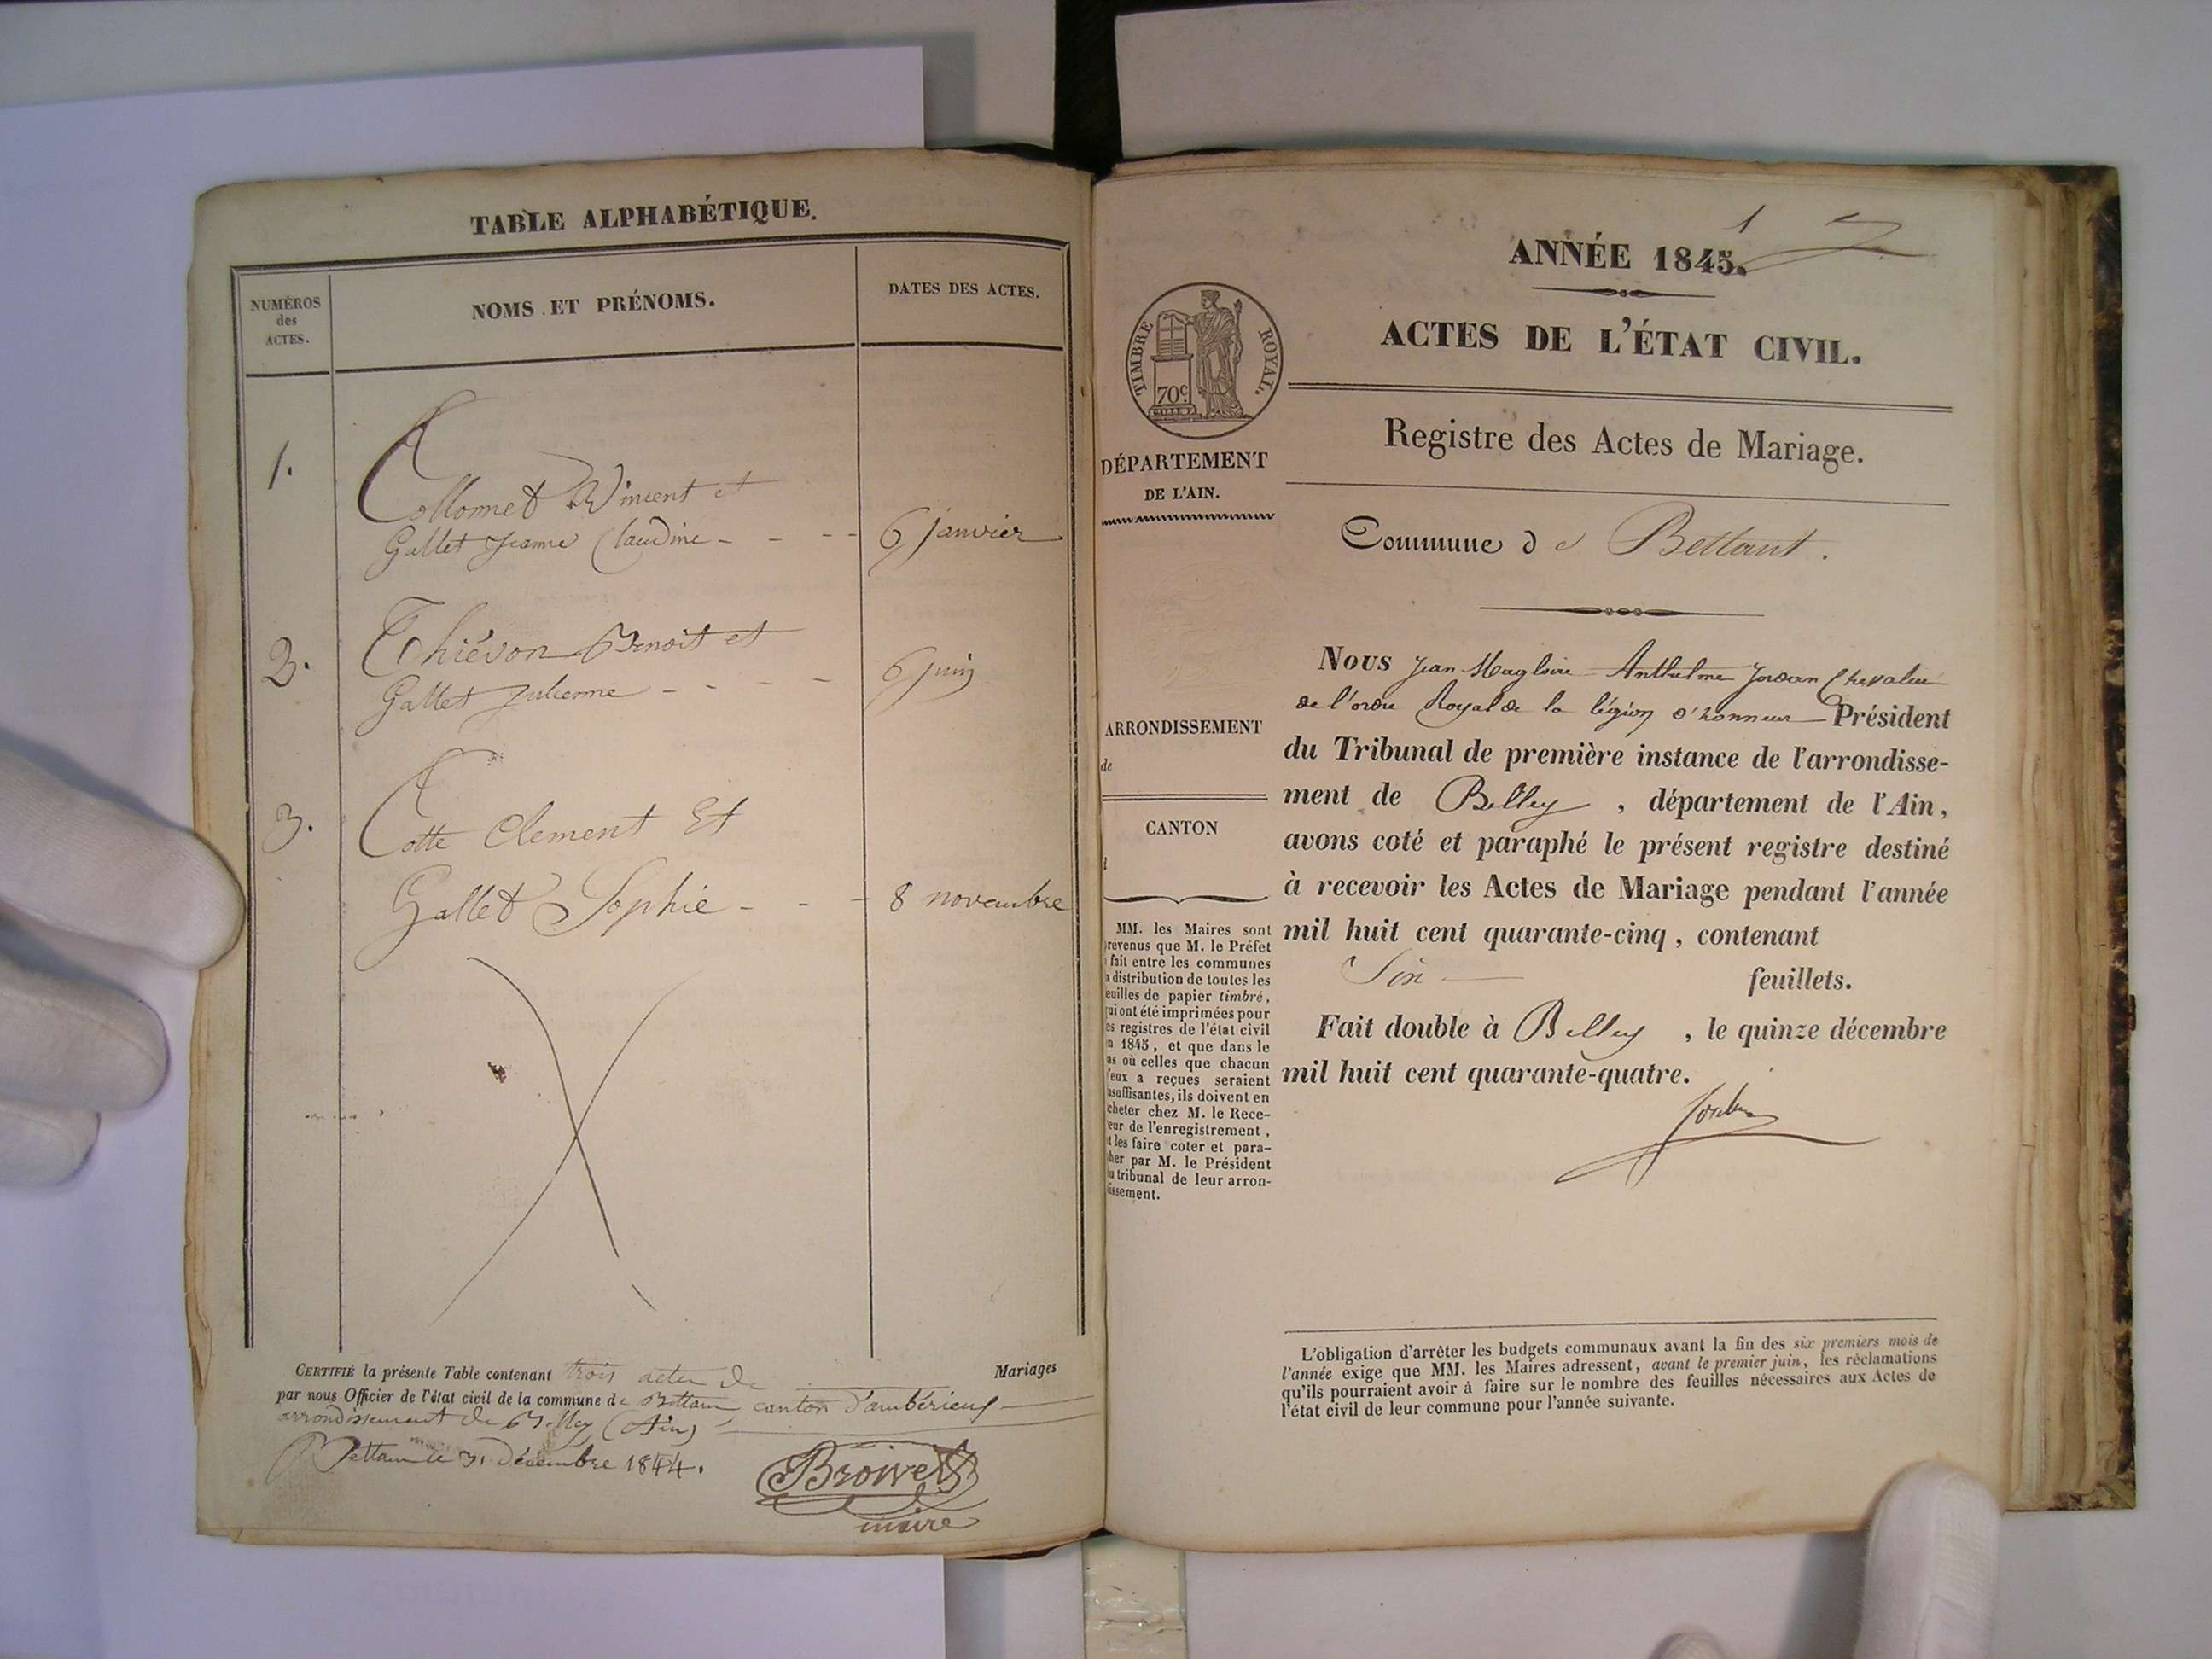 TABLE ALPHABÉTIQUE.
NUMÉROS
des
ACTES.
NOMS ET PRÉNOMS.
DATES DES ACTES.
1.
Collomet Vincent et
Gallet Jeanne Claudine - - - -
6 janvier
2.
Thiévon Benoit et
Gallet Julienne - - - -
6 juin
3.
Cotte Clement Et
Gallet Sophie - - -
8 novembre
CERTIFIÉ la présente Table contenant trois actes de Mariages
par nous Officier de l'état civil de la commune de Bettant canton d'ambérieux
arrondissement de Belley (Ain)
Bettant le 31 Décembre 1844.
maire
1
ANNÉE 1845.
ACTES DE L'ÉTAT CIVIL.
Registre des Actes de Mariage.
TIMBRE ROYAL.
70c
DÉPARTEMENT
DE L'AIN.
Commune de Bettant.
ARRONDISSEMENT
de
CANTON
Nous Jean Magloire Anthelme Jordan Chevalier
de l'ordre Royal de la légion d'honneur Président
du Tribunal de première instance de l'arrondisse-
ment de Belley, département de l'Ain,
avons coté et paraphé le présent registre destiné
à recevoir les Actes de Mariage pendant l'année
mil huit cent quarante-cinq, contenant
Six feuillets.
Fait double à Belley, le quinze décembre
mil huit cent quarante-quatre.
MM. les Maires sont
révenus que M. le Préfet
fait entre les communes
a distribution de toutes les
euilles de papier timbré,
ui ont été imprimées pour
es registres de l'état civil
n 1845, et que dans le
as où celles que chacun
'eux a reçues seraient
nsuffisantes, ils doivent en
cheter chez M. le Rece-
eur de l'enregistrement,
t les faire coter et para-
her par M. le Président
u tribunal de leur arron-
issement.
L'obligation d'arrêter les budgets communaux avant la fin des six premiers mois de
l'année exige que MM. les Maires adressent, avant le premier juin, les réclamations
qu'ils pourraient avoir à faire sur le nombre des feuilles nécessaires aux Actes de
l'état civil de leur commune pour l'année suivante.